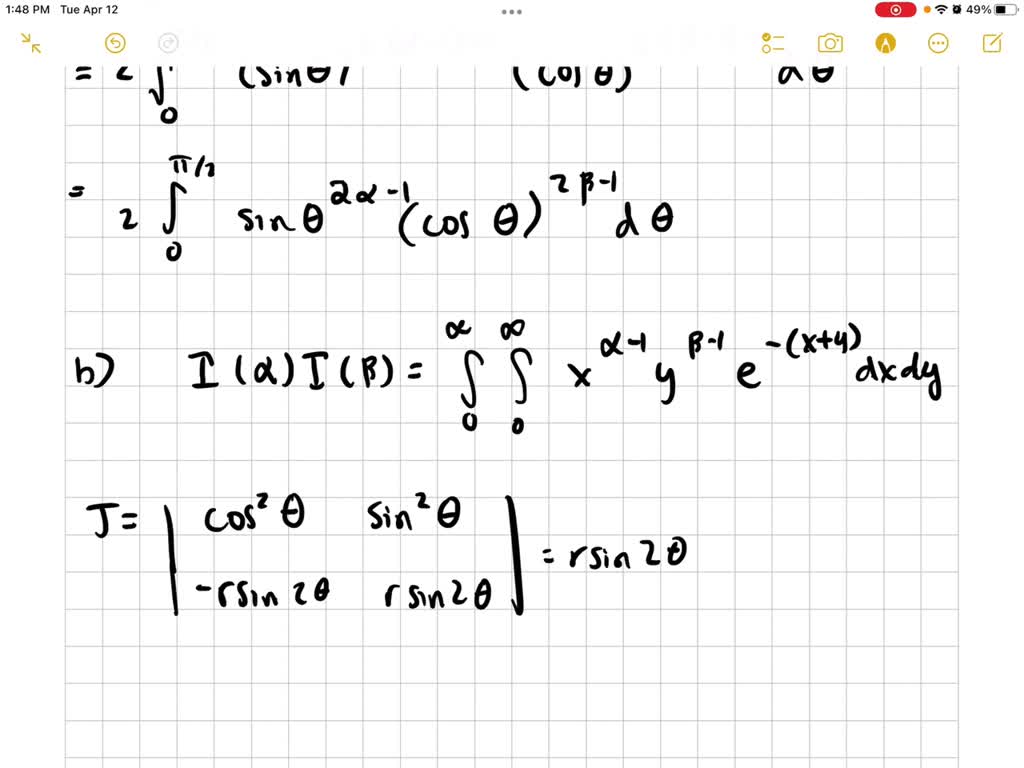 1:48 PM Tue Apr 12 49%
= 2 ∫₀ (sin θ) (cos θ) dθ
= 2 ∫₀^{π/2} sin θ^{2α-1} (cos θ)^{2β-1} dθ
b) I(α) I(β) = ∫₀^∞ ∫₀^∞ x^{α-1} y^{β-1} e^{-(x+y)} dx dy
J = | cos² θ sin² θ |
| -r sin 2θ r sin 2θ | = r sin 2θ